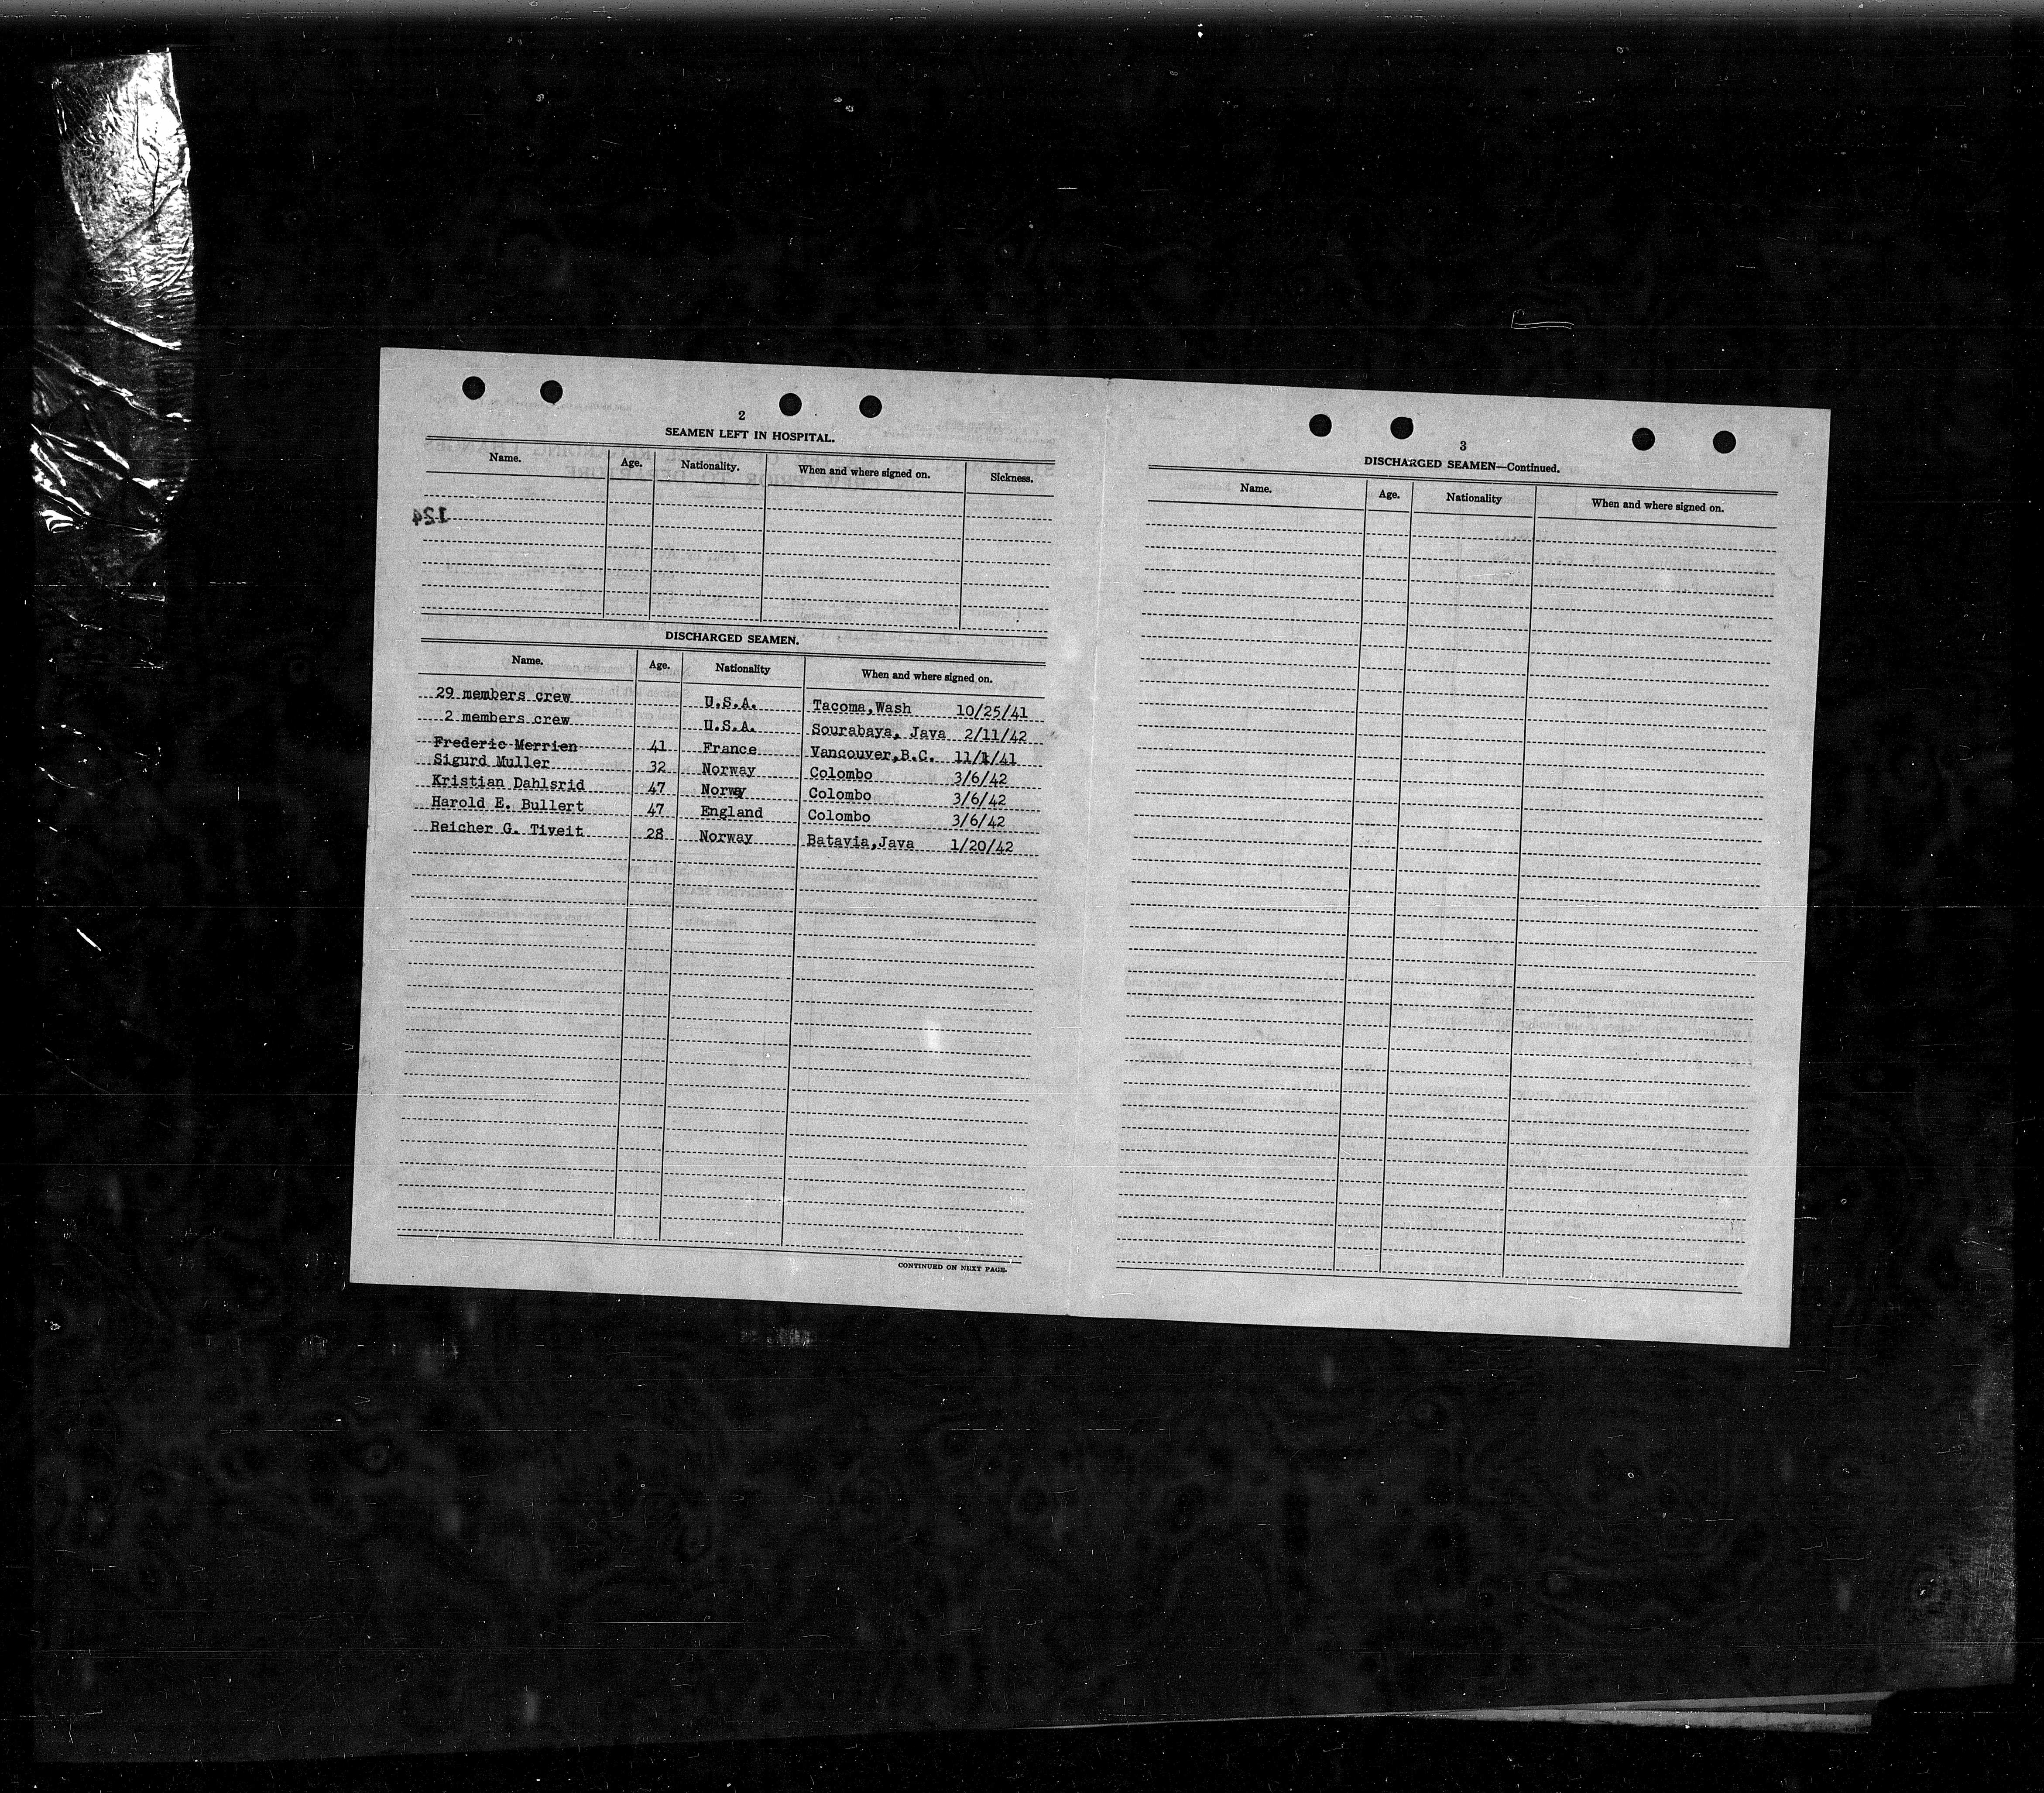 2
SEAMEN LEFT IN HOSPITAL.
Name. Age. Nationality. When and where signed on. Sickness.
124
DISCHARGED SEAMEN.
Name. Age. Nationality When and where signed on.
29 members crew U.S.A. Tacoma,Wash 10/25/41
2 members crew U.S.A. Sourabaya, Java 2/11/42
Frederic Merrien 41 France Vancouver,B.C. 11/1/41
Sigurd Muller 32 Norway Colombo 3/6/42
Kristian Dahlsrid 47 Norway Colombo 3/6/42
Harold E. Bullert 47 England Colombo 3/6/42
Reicher G. Tiveit 28 Norway Batavia,Java 1/20/42
CONTINUED ON NEXT PAGE.
3
DISCHARGED SEAMEN—Continued.
Name. Age. Nationality When and where signed on.